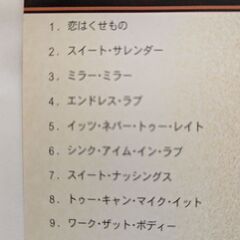 1. 恋はくせもの
2. スイート・サレンダー
3. ミラー・ミラー
4. エンドレス・ラブ
5. イッツ・ネバー・トゥー・レイト
6. シンク・アイム・イン・ラブ
7. スイート・ナッシングス
8. トゥー・キャン・マイク・イット
9. ワーク・ザット・ボディー